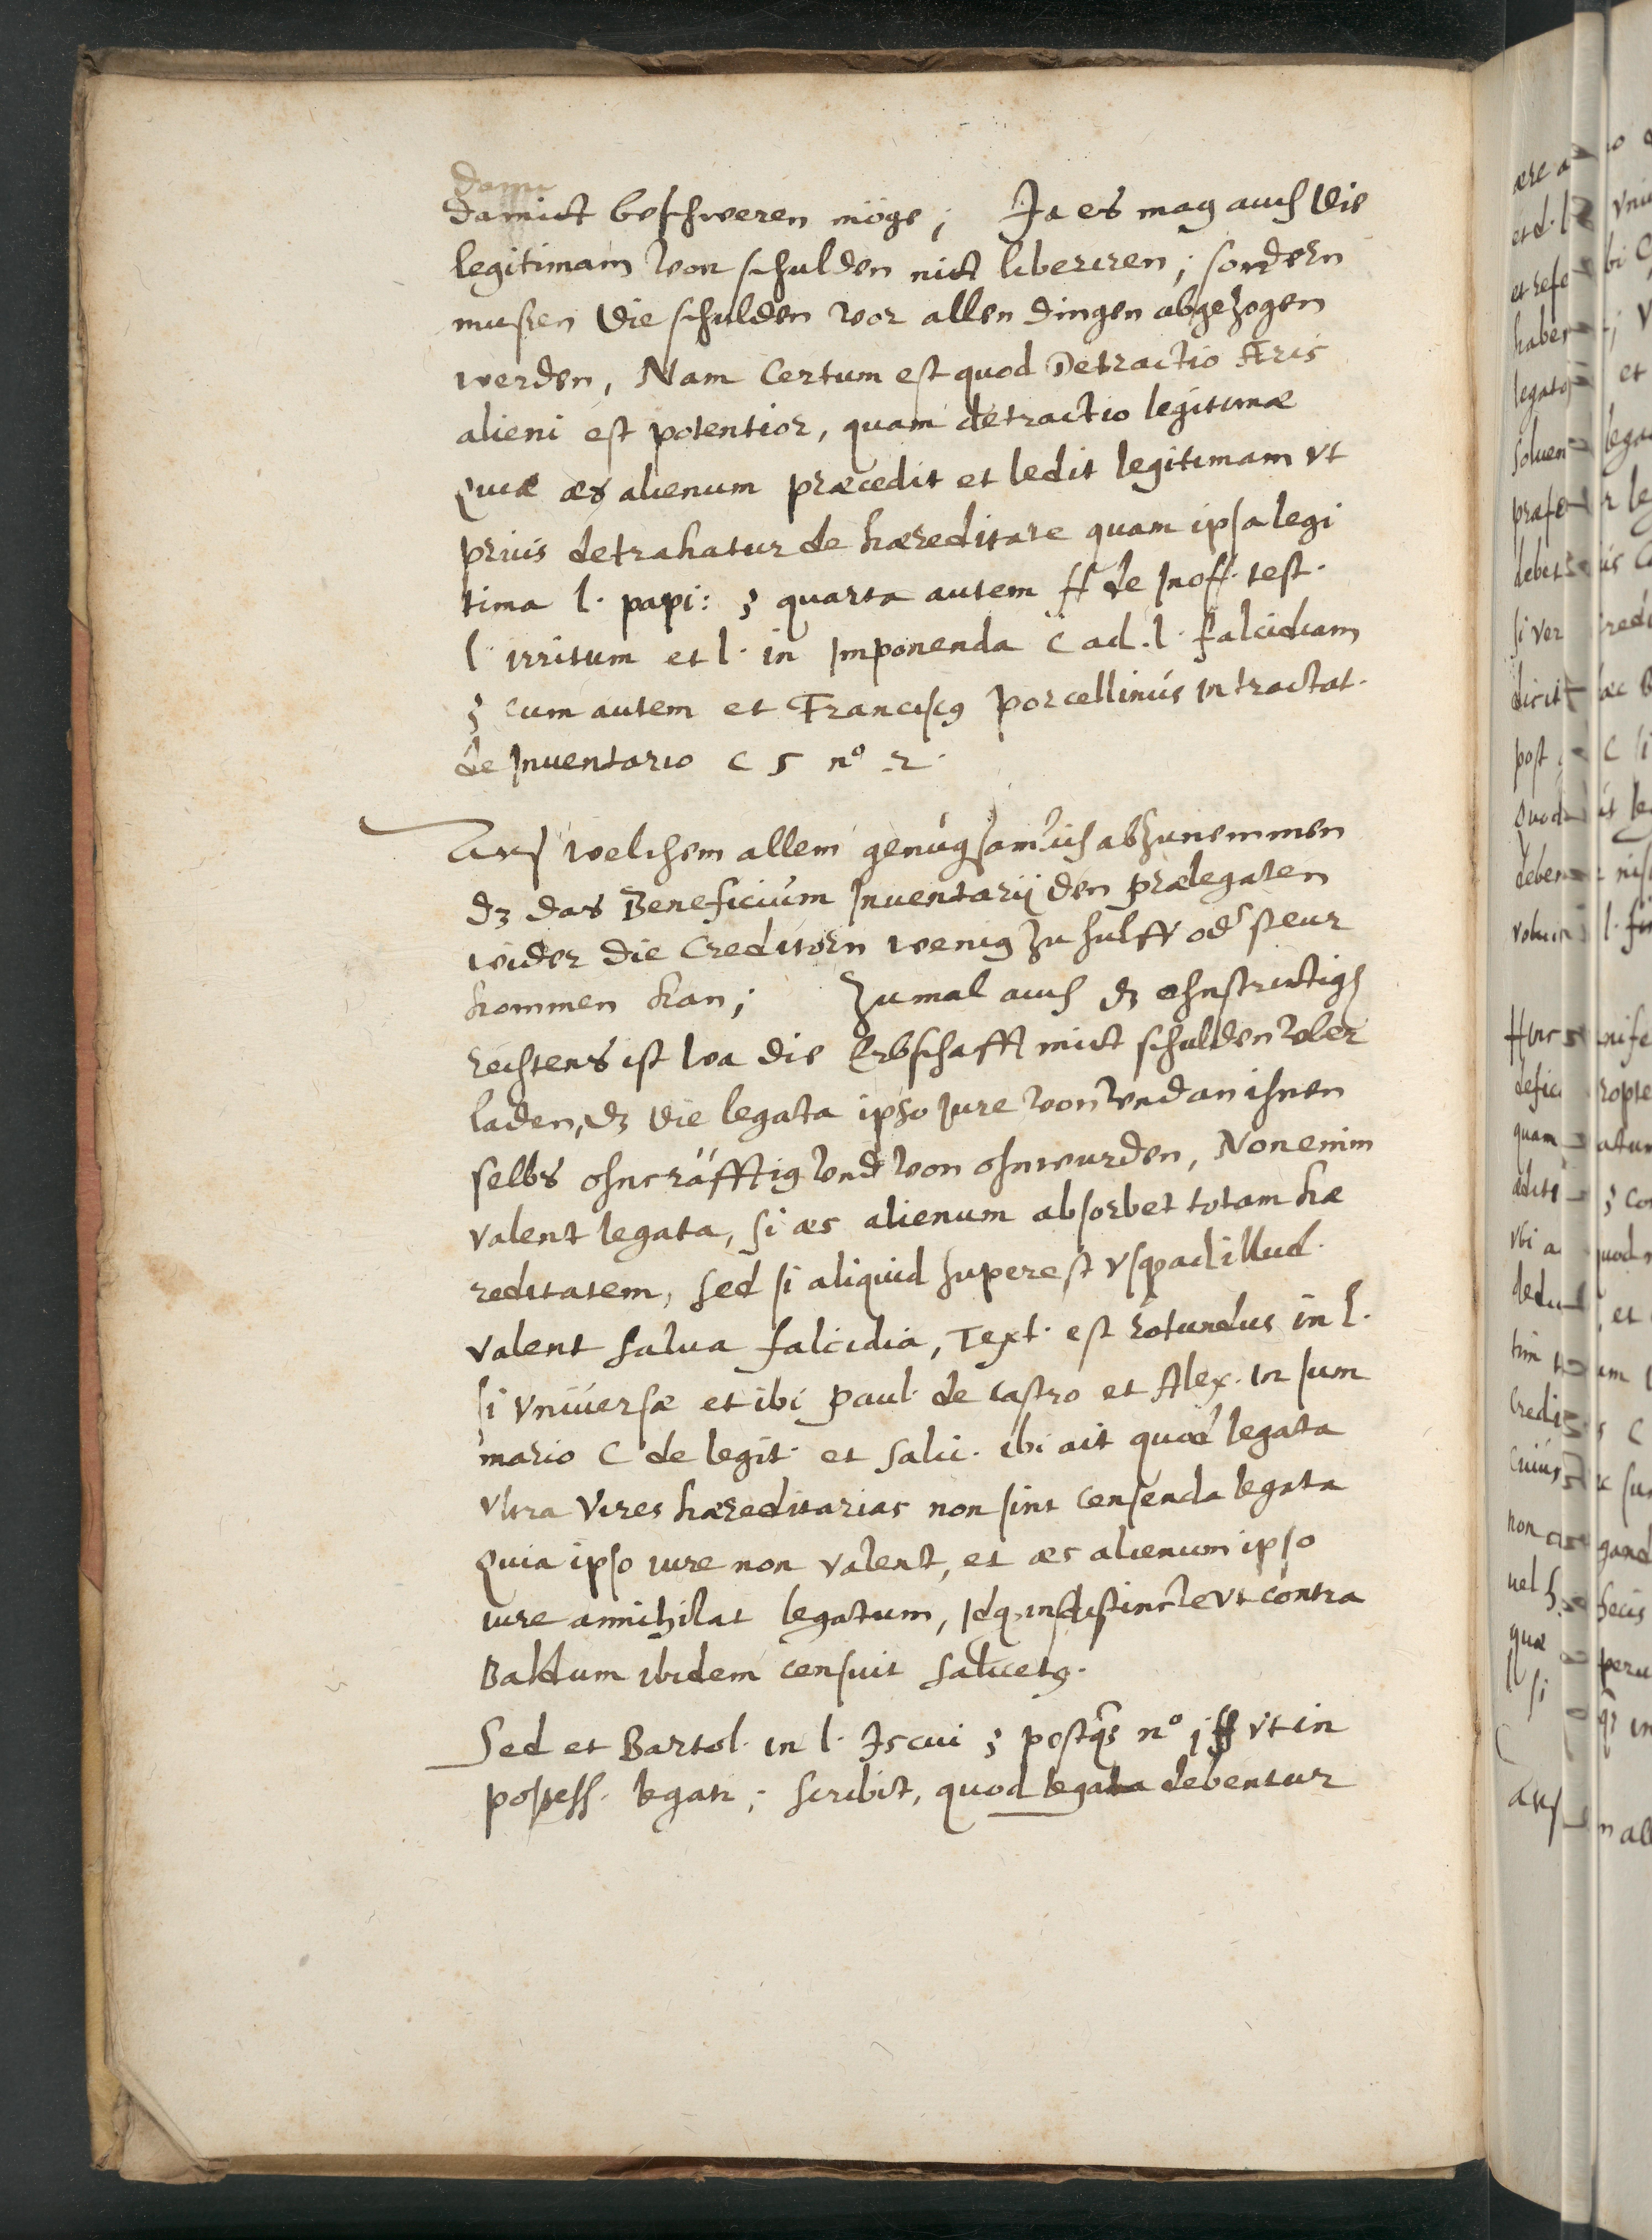 damict beschweren möge; Ja es mag auch die
legitimam von schulden nict liberiren; sondern
mußen die schulden vor allen dingen abgezogen
werden, Nam Certum est quod Detractio Æris
alieni est potentior, quam detractio legitimæ
Quiæ æs alienum præcedit et ledit legitimam vt
prius detrahatur de hæreditate quam ipsa legi
tima l. papi: § quarta autem ff de Inoff. test.
l. irritum et l. in Imponenda C ad. l. falcidiam
§ cum autem et Franciscꝰ Porcellinus in tractat.
de Inuentario c 5 nº 2.
Aus welchem allem genugsamlich abzunemmen
dz das Beneficium Inuentarij den prælegaten
wider die Creditorn weniq zu hulff oder steur
kommen kan; Zumal auch dz ohnstrictigs
rechtens ist wa die Erbschafft mict schulden vber
laden, dz die legata ipso Jure von vnd an ihnen
selbs ohncräfftig vnd von ohnwurden, Non enim
valent legata, si æs alienum absorbet totam hæ
reditatem, sed si aliquid superest vsque ad illud
valent salua falcidia, Text. est rotundus in l.
si vniuersæ et ibi Paul. de Castro et Alex. in sum
mario C de legit. et Salic. ibi ait quod legata
vltra vires hæreditarias non sint censenda legata
Quia ipso iure non valent, et æs alienum ipso
iure annihilat legatum, Idq. indistincte vt contra
Baldum ibidem censuit Salicetꝰ.
Sed et Bartol. in l. Is cui § postqz nº j ff vt in
possess. legat; scribit, quod legata debentur